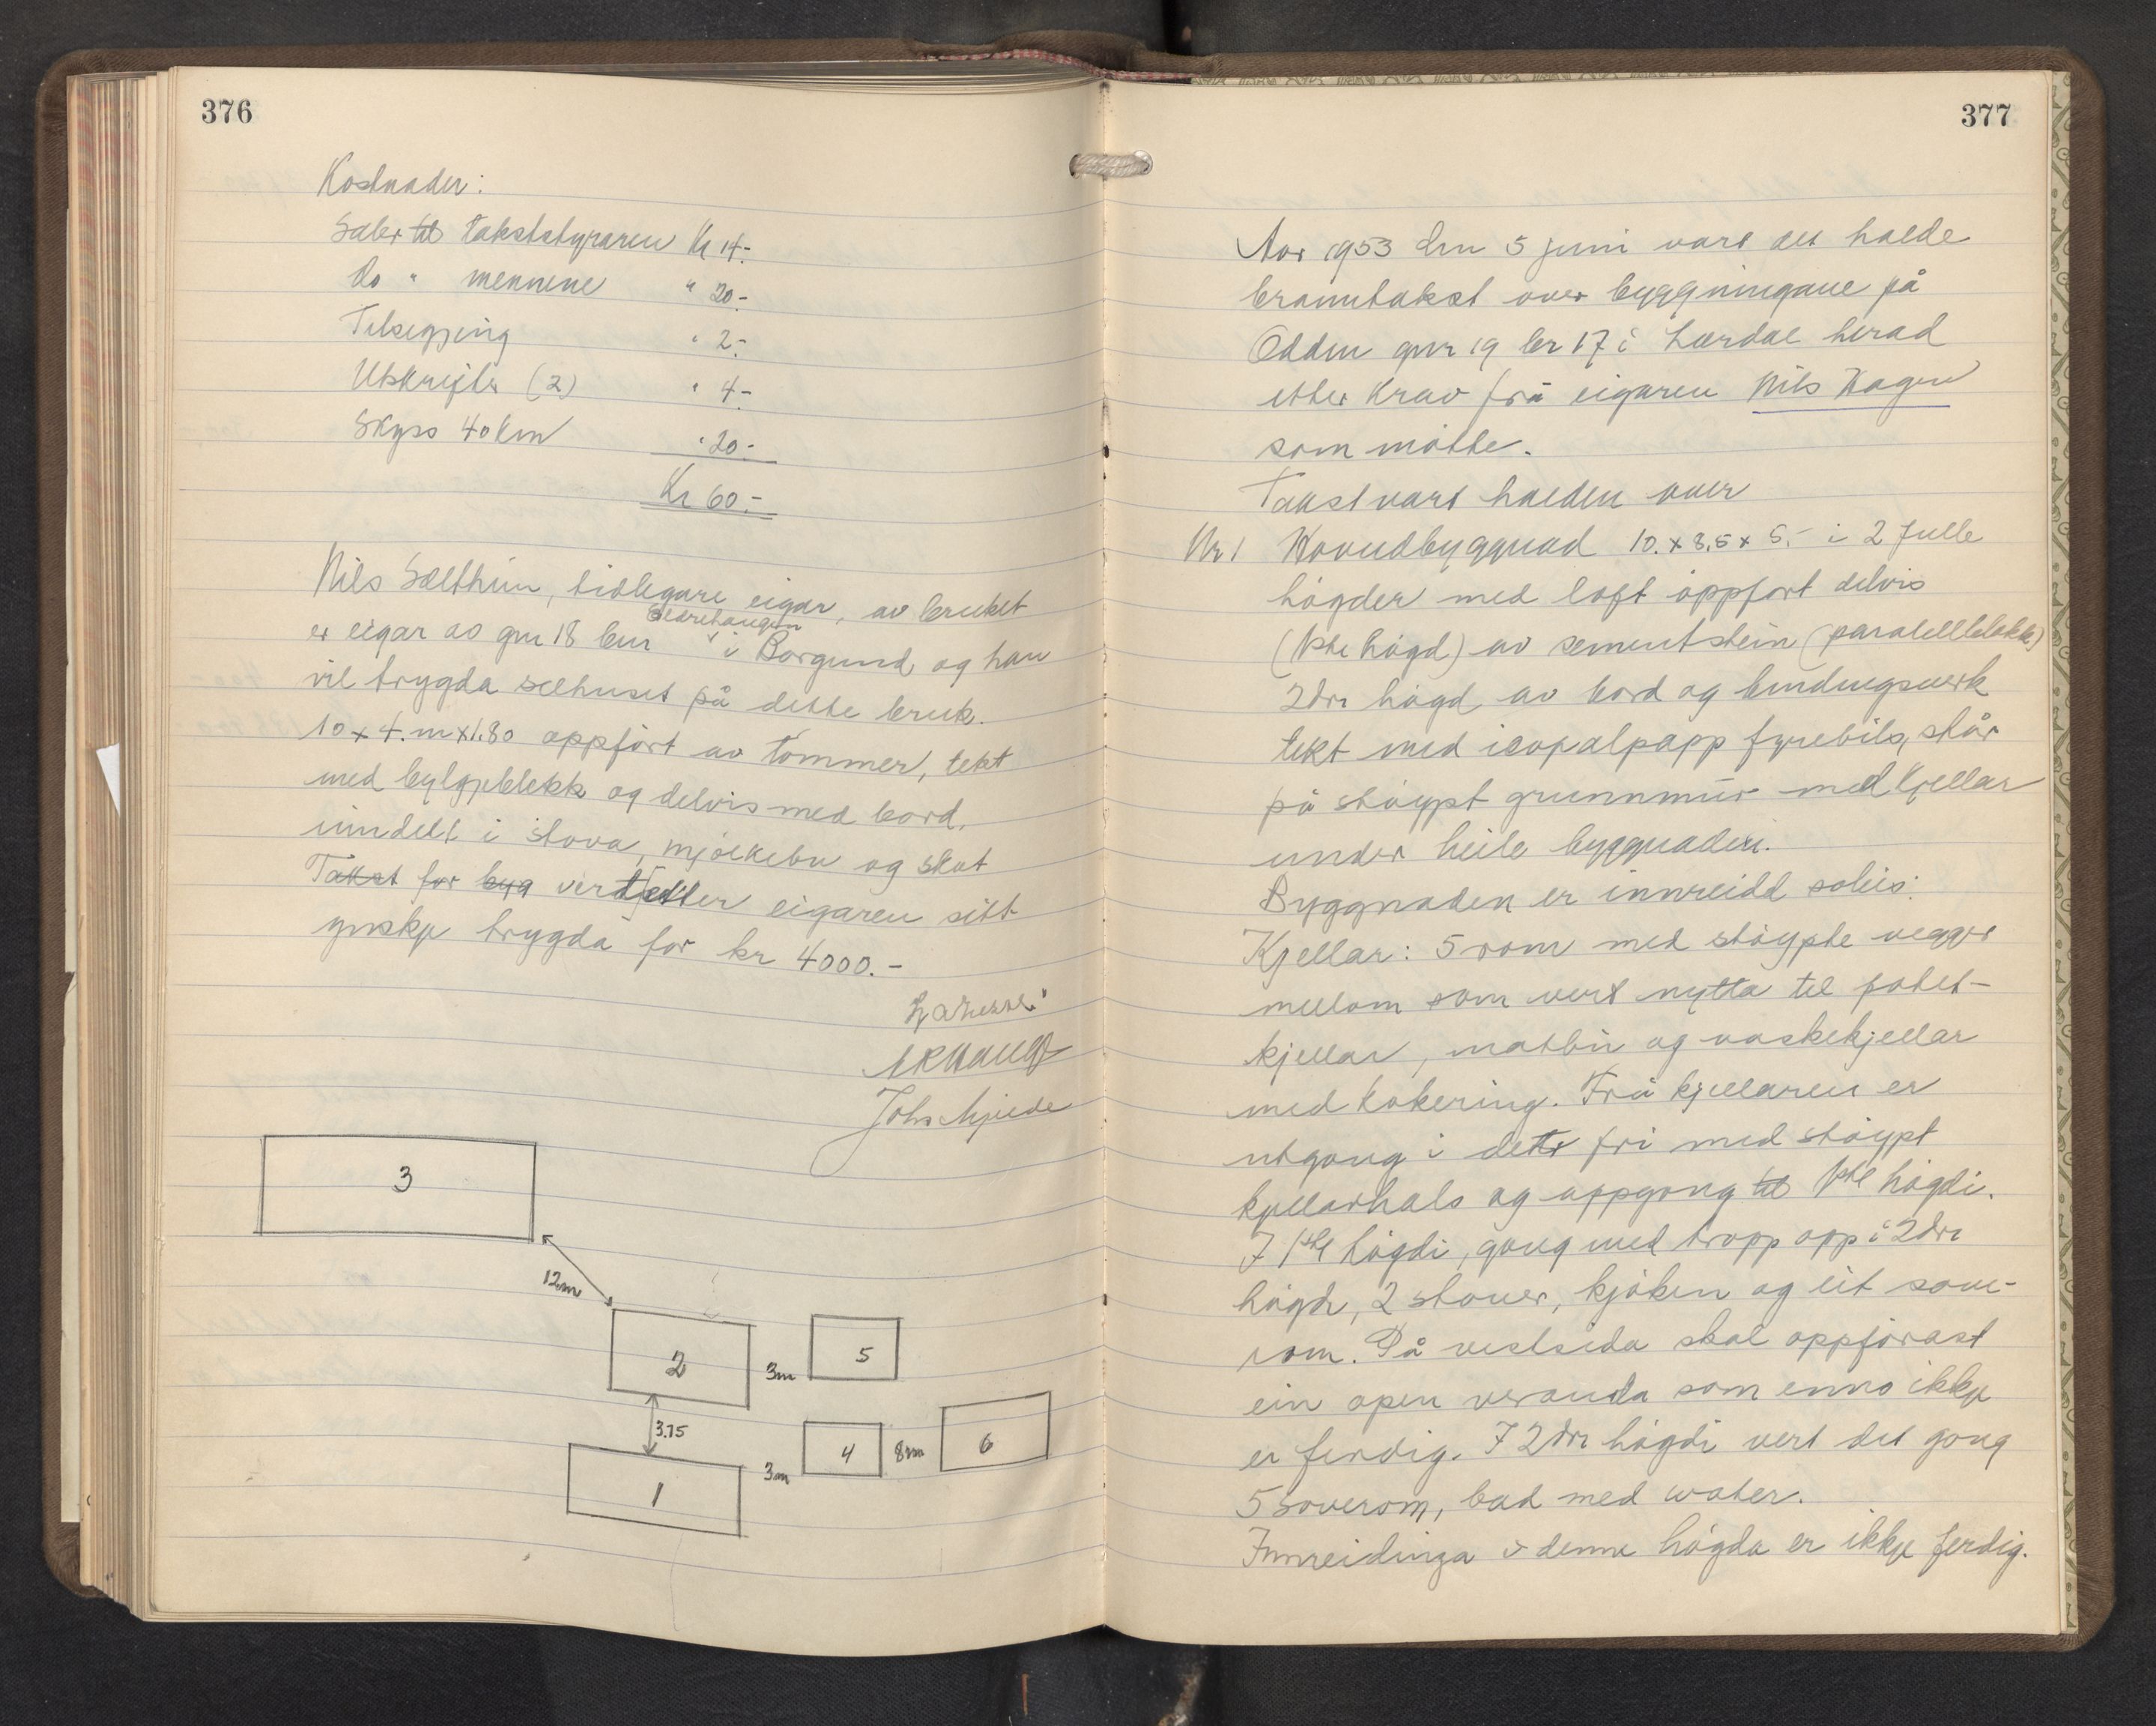 376
Kostnader:
Saler til takststyraren Kr 14.-
Do " mennene " 20.-
Tilsegjing " 2.-
Utskrifter (2) " 4.-
Skyss 40 km " 20.-
Kr 60.-
Nils Sælthun, tidlegare eigar, av bruket
er eigar av gnr 18 bnr " i Borgund og han
vil trygda selhuset på dette bruk.
10 x 4.m x 1.80 oppført av tømmer, tekt
med bylgjeblekk og delvis med bord.
inndelt i stova, mjølkebu og skot
Takst for byg vert etter eigaren sitt
ynskje trygda for kr 4000.-
Johs Mjelde
3
12m
2
3m
5
3.75
4
8m
6
1
3m
377
Aar 1953 den 5 juni vart det halde
branntakst over byggningane på
Odden gnr 19 br 17 i Lærdal herad
etter krav frå eigaren Nils Hagen
som møtte.
Takst vart halden over
Nr 1 Hovudbyggnad 10. x 8,5 x 5.- i 2 fulle
høgder med loft oppført delvis
(1ste høgd) av sementstein (paralellblokk)
2dre høgd av bord og bindingsverk
tekt med icopalpapp fyrebils, står
på støypt grunnmur med kjellar
under heile byggnaden.
Byggnaden er innreidd soleis:
Kjellar: 5 rom med støypte vegger
mellom som vert nytta til potet-
kjellar, matbu og vaskekjellar
med kokering. Frå kjellaren er
utgong i dette fri med støypt
kjellarhals og oppgong til 1ste høgdi.
I 1ste høgdi, gong med tropp opp i 2dre
høgdi, 2 stover, kjøken og eit sove-
rom. På vestsida skal oppførast
ein open veranda som enno ikkje
er ferdig. I 2dre høgdi vert det gong
5 soverom, bad med water.
Innreidinga i denne høgda er ikkje ferdig.